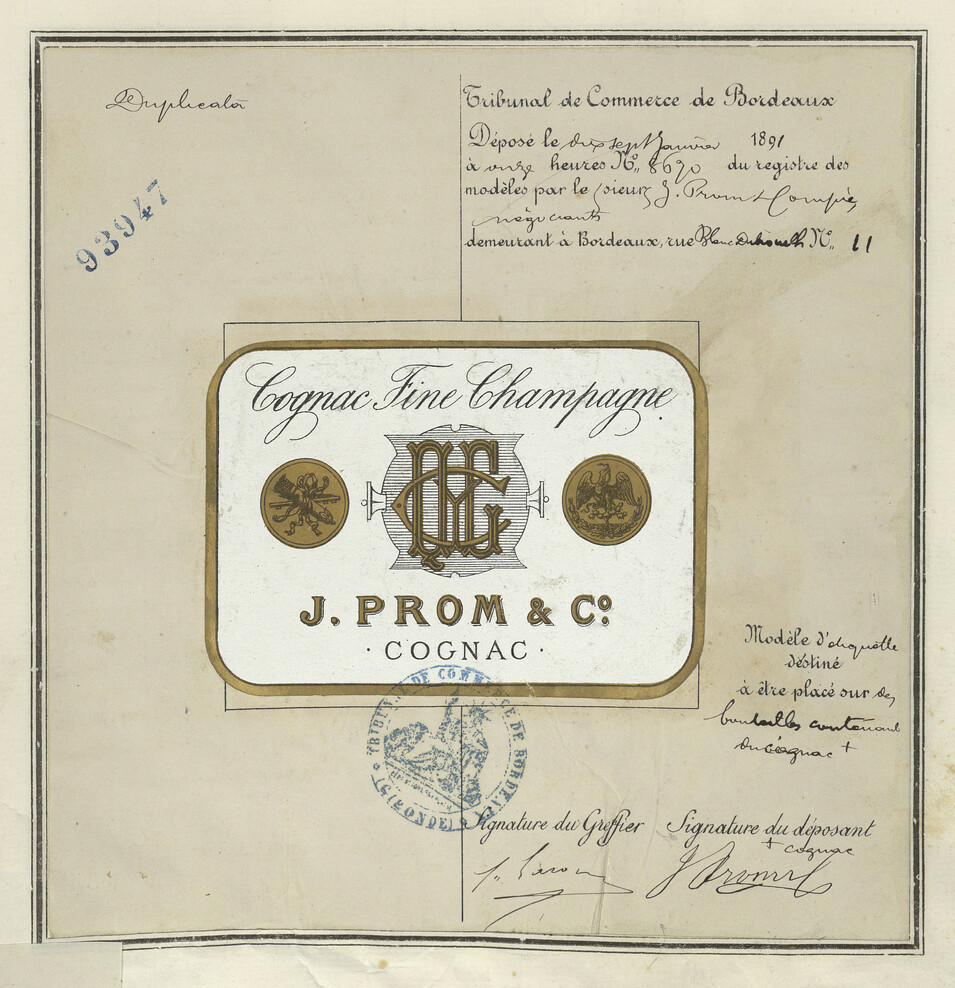 Duplicata
93947
Tribunal de Commerce de Bordeaux
Déposé le dix sept Janvier 1891
à onze heures No. 8690 du registre des
modèles par le sieurs J. Prom & Compie,
négociants
demeurant à Bordeaux, rue Blanc Dutrouilh No. 11
Cognac Fine Champagne
J. PROM & Co.
· COGNAC ·
Modèle d'étiquette
destiné
à être placé sur des
bouteilles contenant
du cognac +
TRIBUNAL DE COMMERCE DE BORDEAUX
(GIRONDE)
Signature du Greffier Signature du déposant
+ cognac
J Prom & C